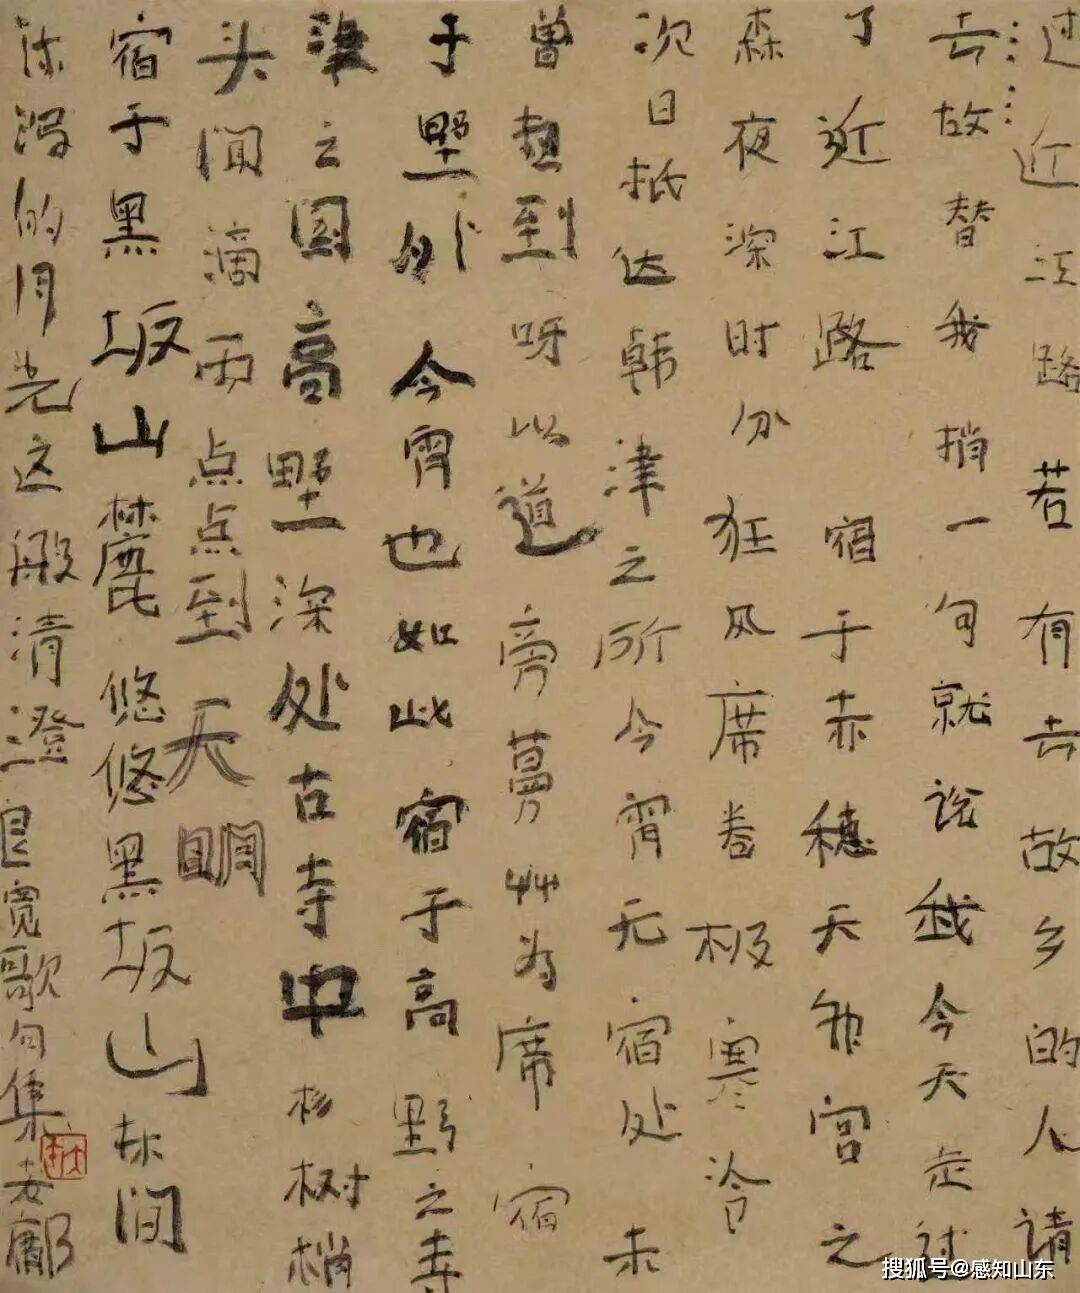 过近江路若有去故乡的人请
去故替我捎一句就说我今天走过
了近江路 宿于赤穗天神宫之
森夜深时分狂风席卷极寒冷
次日抵达韩津之所今宵无宿处未
曾想到呀以道旁艸为席宿
于野外今宵也如此宿于高野之寺
津之国高野深处古寺中杉树梢
头闻滴雨点点到天明
宿于黑坂山麓悠悠黑坂山林间
流泻的月光这般清澄良宽歌句集
搜狐号@感知山东